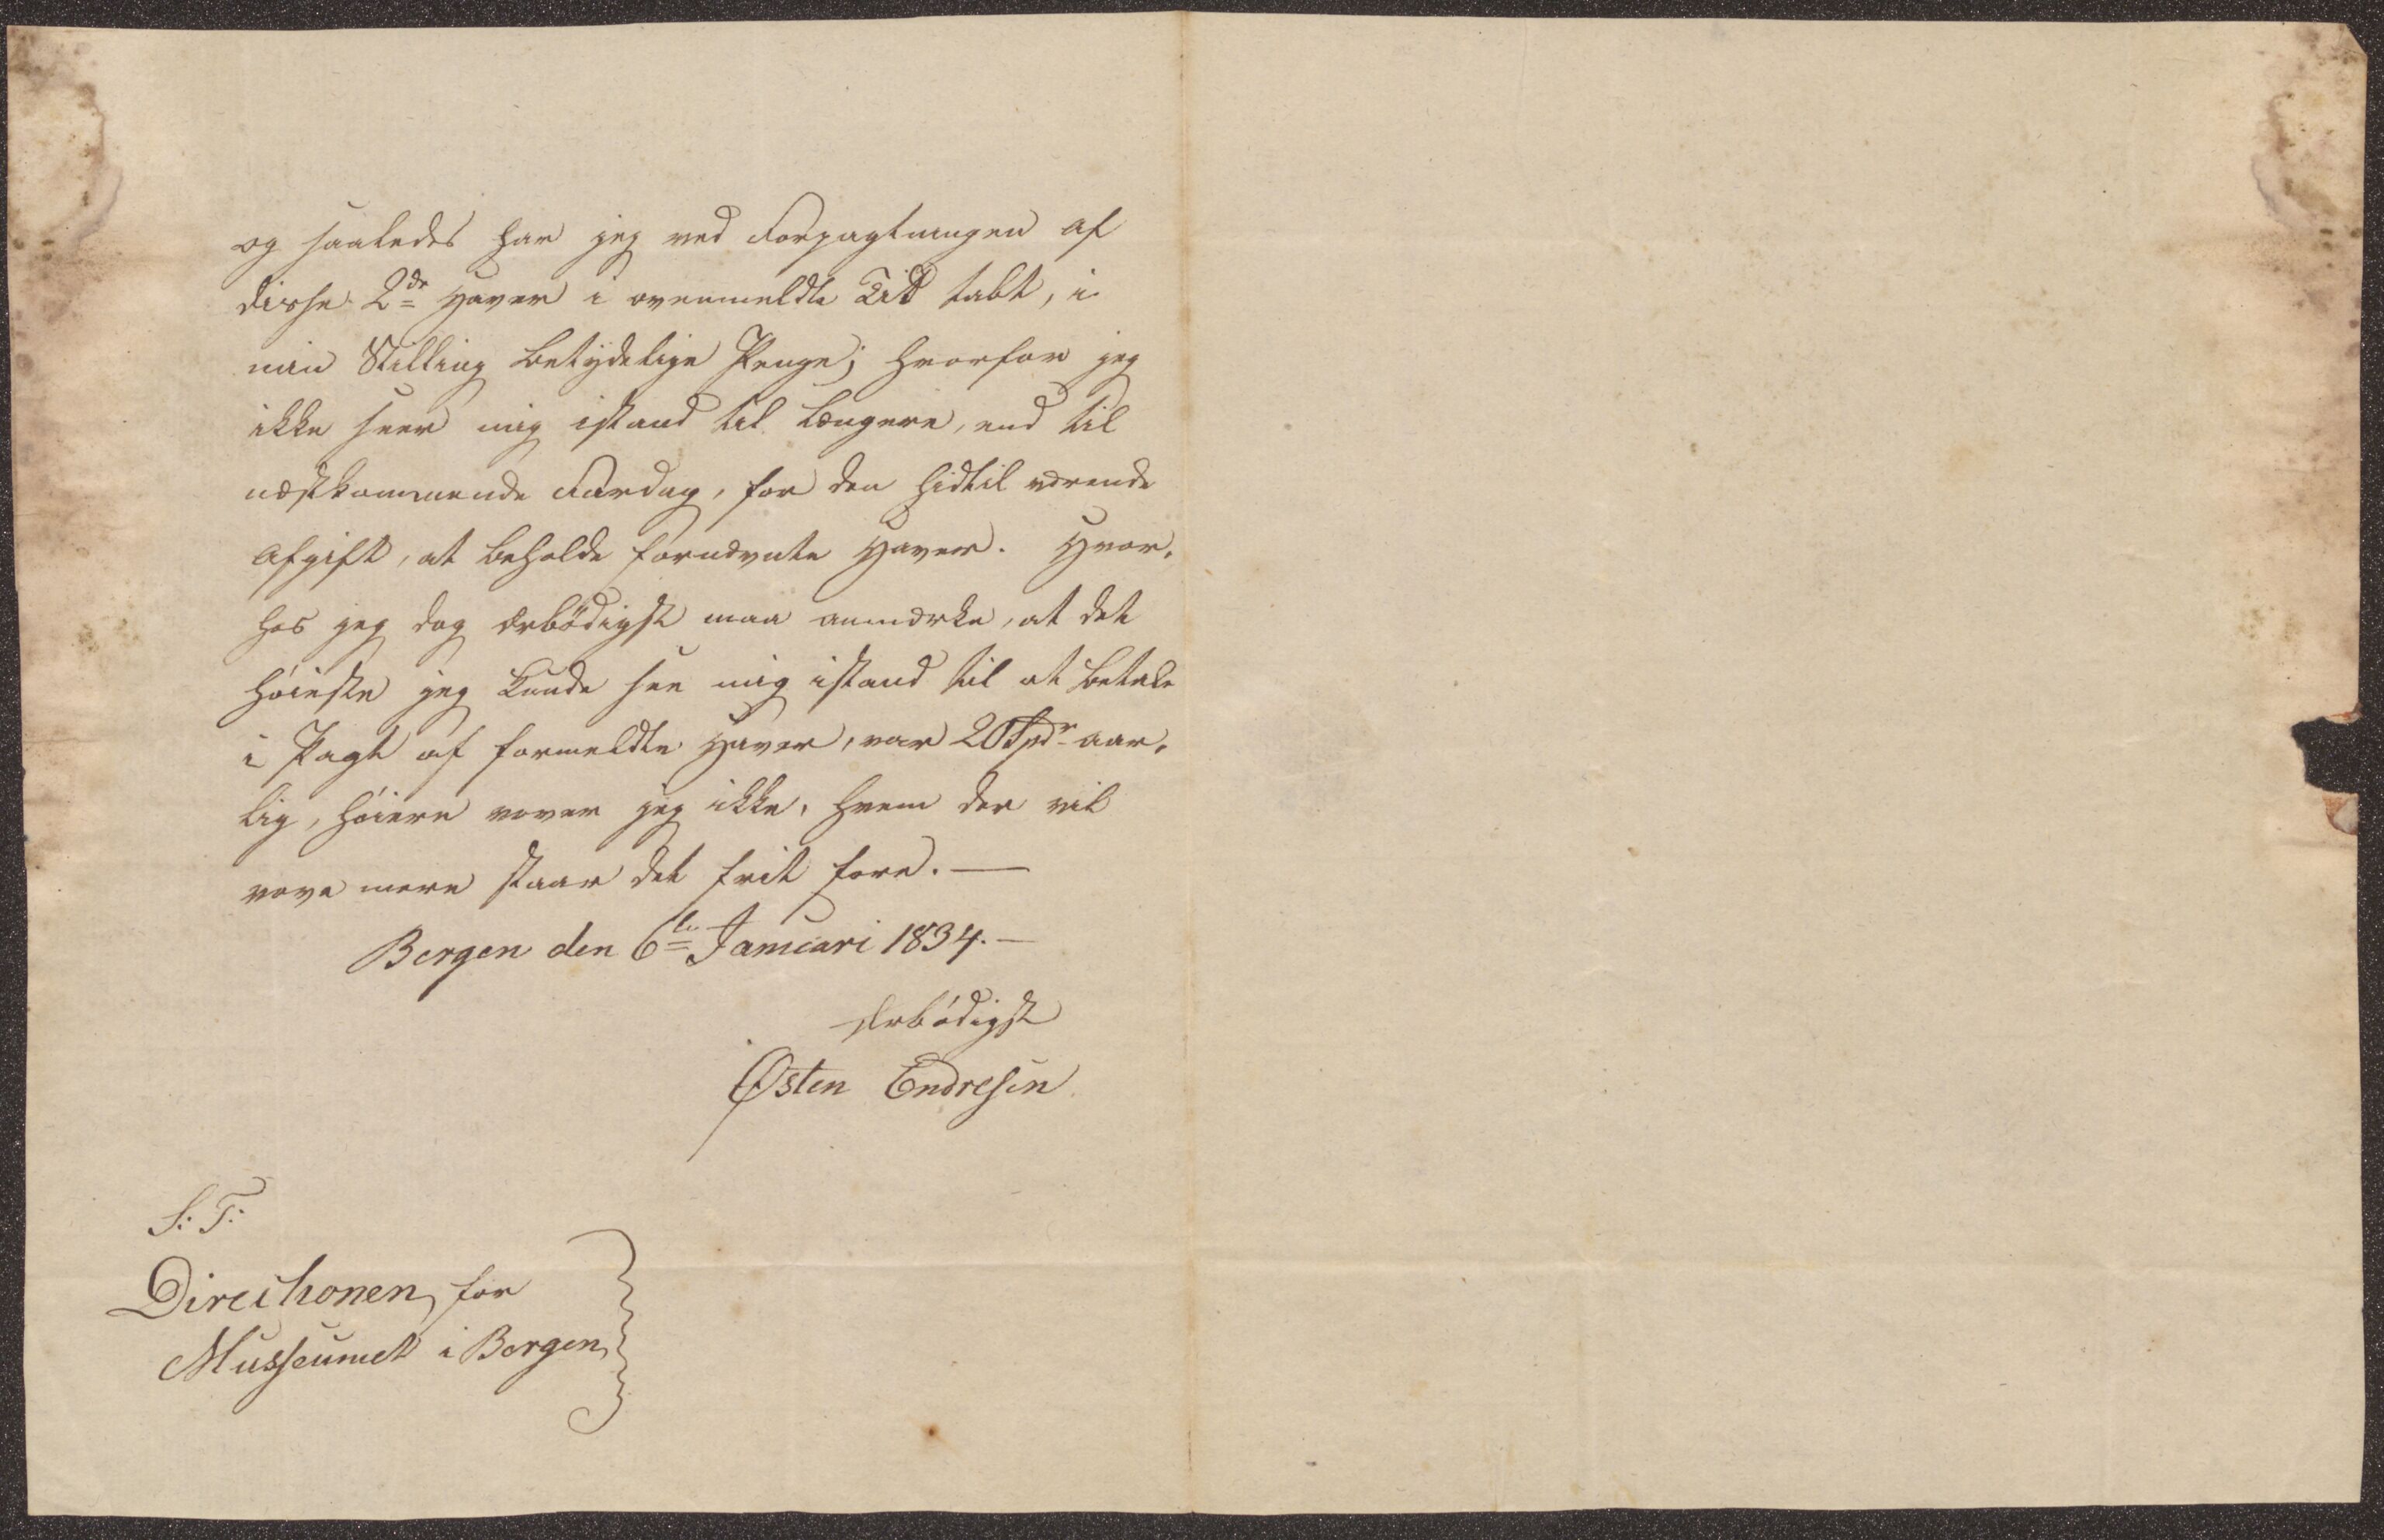 og saaledes har jeg ved Forpagtningen af
disse 2de Haver i ovenmeldte Tid tabt, i
min Stilling betydelige Penge; hvorfor jeg
ikke seer mig istand til længere, end til
næstkommende Fardag, for den hidtil værende
Afgift, at beholde fornævnte Haver. Hvor-
hos jeg dog ærbödigst maa anmærke, at det
höieste jeg kunde see mig istand til at betale
i Pagt af formeldte Haver, var 20 Spdr aar-
lig, höiere vover jeg ikke, hvem der vil
vove mere staar det frit fore. —
Bergen den 6te Januari 1834. —
Ærbödigst
Østen Endresen
S: T:
Directionen for
Musseumet i Bergen